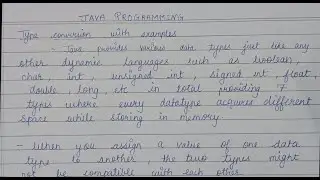 JAVA PROGRAMMING
Type conversion with examples
- Java provides various data types just like any
other dynamic languages such as boolean,
char, int, unsigned int, signed int, float,
double, long, etc in total providing 7
types where every datatype acquires different
space while storing in memory.
- When you assign a value of one data
type to another, the two types might
not be compatible with each other.